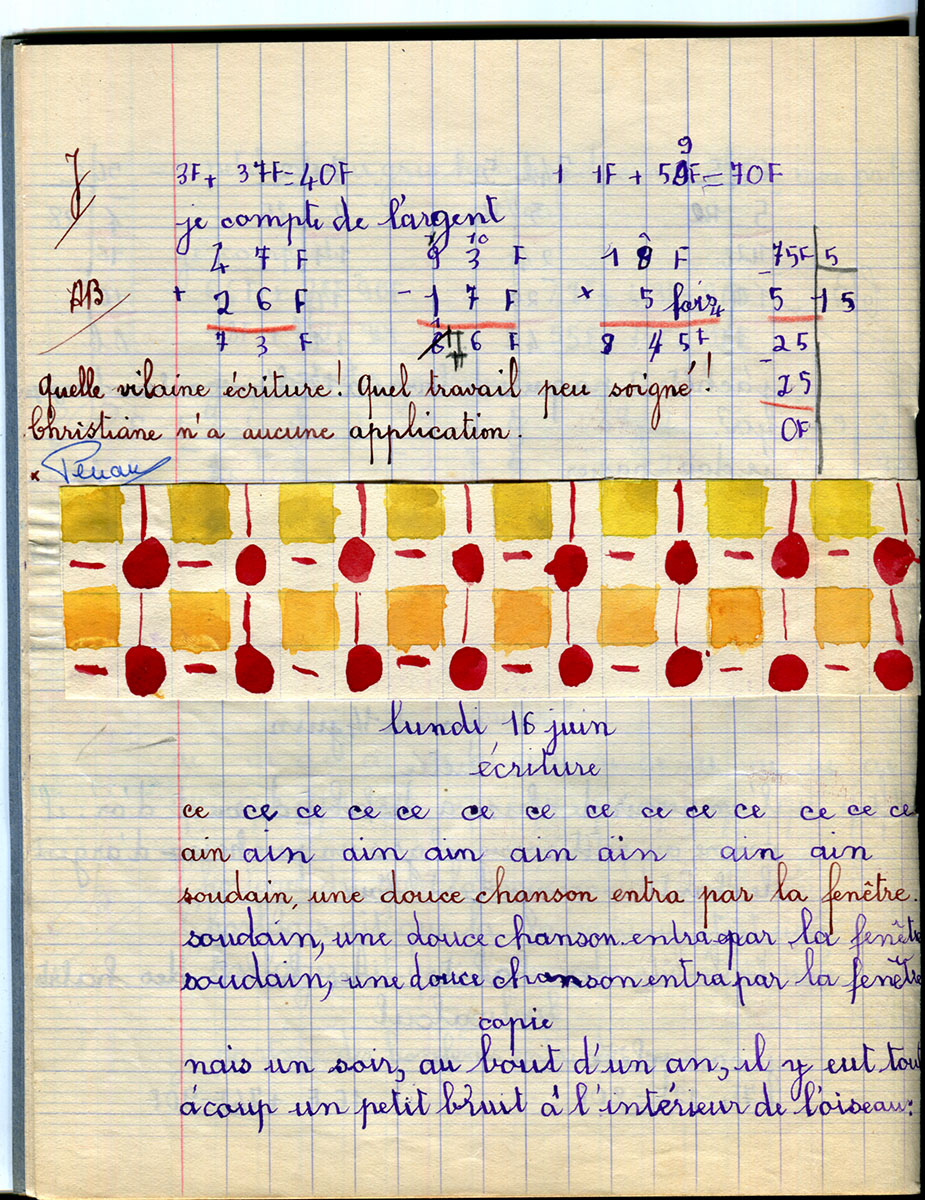 J 3F + 37F = 40F 11F + 59F = 70F
je compte de l'argent
47F 93F 18F 75F 5
AB + 26F - 17F × 5 fois 5 15
73F 76F 845F 25
Quelle vilaine écriture! Quel travail peu soigné! 25
Christiane n'a aucune application. 0F
lundi 16 juin
écriture
ce ce ce ce ce ce ce ce ce ce ce ce ce ce
ain ain ain ain ain ain ain ain
soudain, une douce chanson entra par la fenêtre.
soudain, une douce chanson entra par la fenêtre
soudain, une douce chanson entra par la fenêtre
copie
nais un soir, au bout d'un an, il y eut tout
à coup un petit bruit à l'intérieur de l'oiseau: